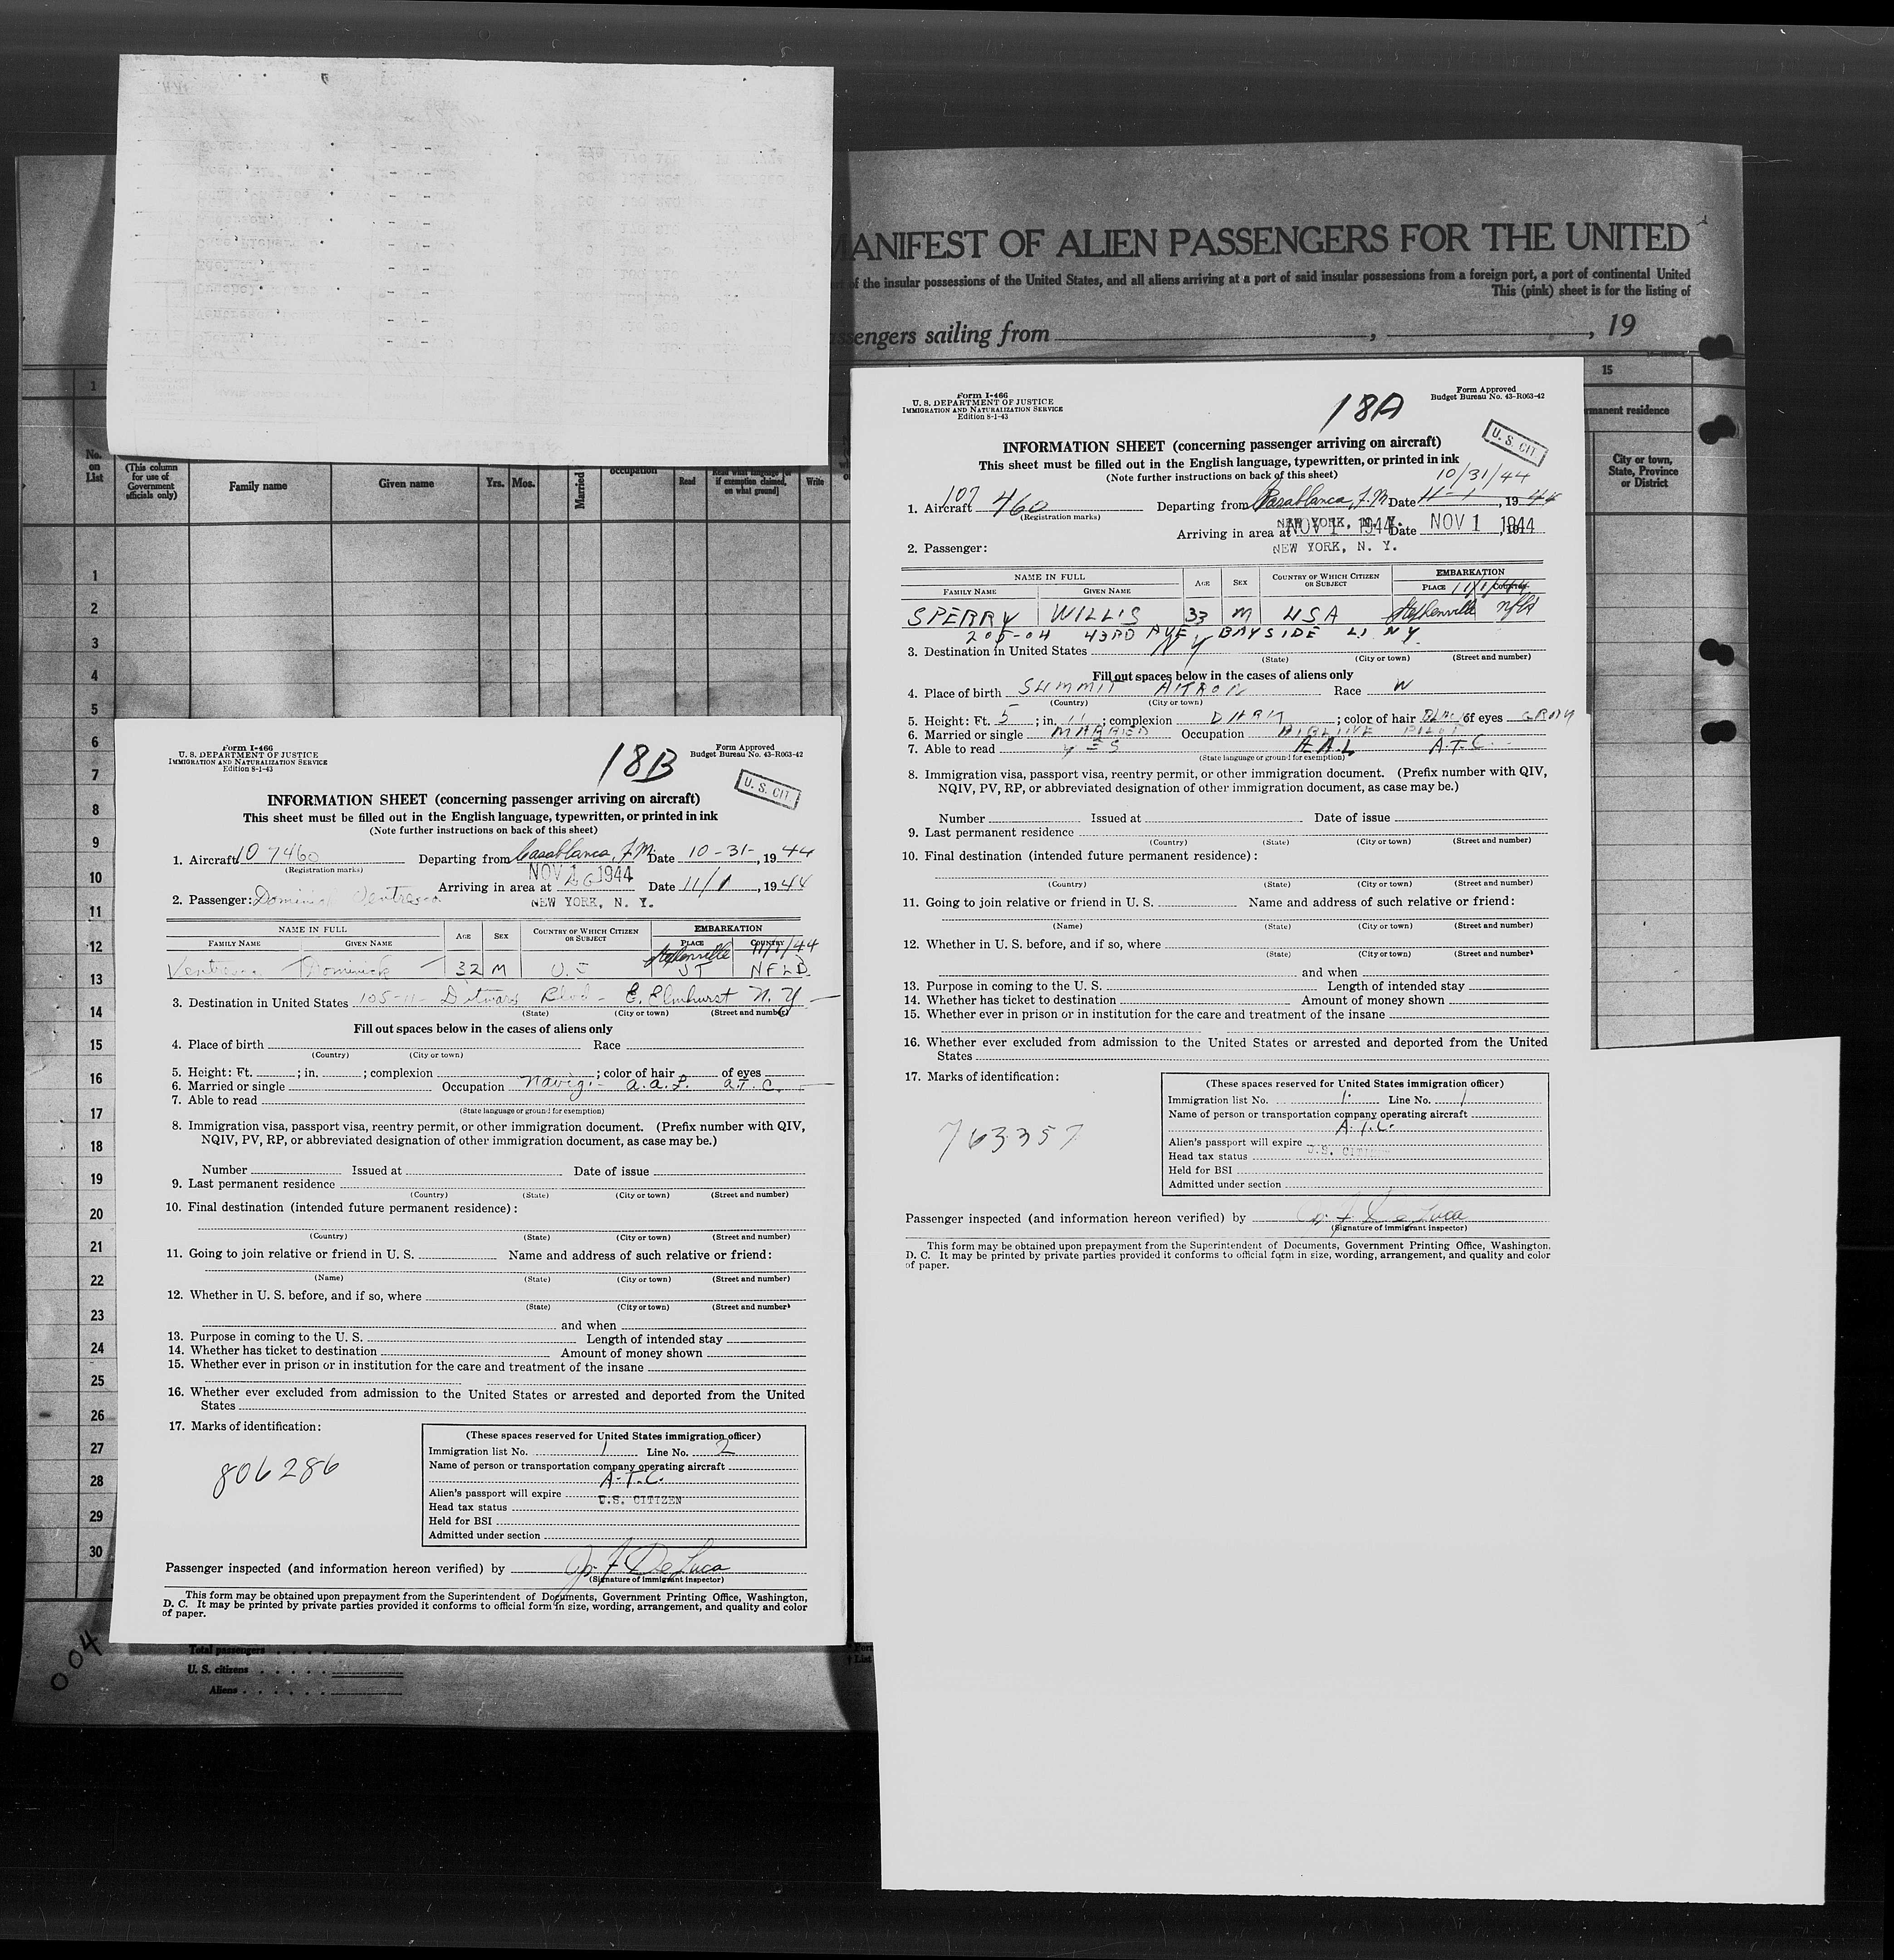 MANIFEST OF ALIEN PASSENGERS FOR THE UNITED
of the insular possessions of the United States, and all aliens arriving at a port of said insular possessions from a foreign port, a port of continental United
This (pink) sheet is for the listing of
passengers sailing from , , 19
15
permanent residence
City or town,
State, Province
or District
1
No.
on
List
(This column
for use of
Government
officials only)
Family name
Given name
Yrs. Mos.
Married
occupation
Read
Read what language [or
if exemption claimed,
on what ground]
Write
1
2
3
4
5
6
7
8
9
10
11
12
13
14
15
16
17
18
19
20
21
22
23
24
25
26
27
28
29
30
Total passengers
U. S. citizens
Aliens
004
Form I-466
U. S. DEPARTMENT OF JUSTICE
IMMIGRATION AND NATURALIZATION SERVICE
Edition 8-1-43
18A
Form Approved
Budget Bureau No. 43-R063-42
U. S. CIT.
INFORMATION SHEET (concerning passenger arriving on aircraft)
This sheet must be filled out in the English language, typewritten, or printed in ink
(Note further instructions on back of this sheet)
10/31/44
1. Aircraft 107 460 Departing from Casablanca, F.M. Date 11-1, 1944
(Registration marks)
NEW YORK, N. Y.
Arriving in area at NOV 1 1944 Date NOV 1 1944
2. Passenger: NEW YORK, N. Y.
NAME IN FULL AGE SEX COUNTRY OF WHICH CITIZEN OR SUBJECT EMBARKATION
FAMILY NAME GIVEN NAME PLACE COUNTRY 11/1/44
SPERRY WILLIS 33 M USA Stephenville Nfld
205-04 43RD AVE, BAYSIDE L.I. N.Y.
3. Destination in United States NY
(State) (City or town) (Street and number)
Fill out spaces below in the cases of aliens only
4. Place of birth SUMMIT Race W
(Country) (City or town)
5. Height: Ft. 5; in. 11; complexion DARK; color of hair of eyes
6. Married or single MARRIED Occupation AIRLINE PILOT
7. Able to read YES A.A.L. A.T.C.
(State language or ground for exemption)
8. Immigration visa, passport visa, reentry permit, or other immigration document. (Prefix number with QIV,
NQIV, PV, RP, or abbreviated designation of other immigration document, as case may be.)
Number Issued at Date of issue
9. Last permanent residence
(Country) (State) (City or town) (Street and number)
10. Final destination (intended future permanent residence):
(Country) (State) (City or town) (Street and number)
11. Going to join relative or friend in U. S. Name and address of such relative or friend:
(Name) (State) (City or town) (Street and number)
12. Whether in U. S. before, and if so, where
(State) (City or town) (Street and number)
and when
13. Purpose in coming to the U. S. Length of intended stay
14. Whether has ticket to destination Amount of money shown
15. Whether ever in prison or in institution for the care and treatment of the insane
16. Whether ever excluded from admission to the United States or arrested and deported from the United
States
17. Marks of identification:
763357
(These spaces reserved for United States immigration officer)
Immigration list No. 1 Line No. 1
Name of person or transportation company operating aircraft
A.T.C.
Alien's passport will expire
Head tax status U.S. CITIZEN
Held for BSI
Admitted under section
Passenger inspected (and information hereon verified) by De Luca
(Signature of immigrant inspector)
This form may be obtained upon prepayment from the Superintendent of Documents, Government Printing Office, Washington,
D. C. It may be printed by private parties provided it conforms to official form in size, wording, arrangement, and quality and color
of paper.
Form I-466
U. S. DEPARTMENT OF JUSTICE
IMMIGRATION AND NATURALIZATION SERVICE
Edition 8-1-43
18B
Form Approved
Budget Bureau No. 43-R063-42
U. S. CIT.
INFORMATION SHEET (concerning passenger arriving on aircraft)
This sheet must be filled out in the English language, typewritten, or printed in ink
(Note further instructions on back of this sheet)
1. Aircraft 107460 Departing from Casablanca, F.M. Date 10-31-, 1944
(Registration marks)
NOV 1 1944
Arriving in area at Date 11/1, 1944
2. Passenger: Dominick Ventresca NEW YORK, N. Y.
NAME IN FULL AGE SEX COUNTRY OF WHICH CITIZEN OR SUBJECT EMBARKATION
FAMILY NAME GIVEN NAME PLACE COUNTRY 11/1/44
Ventresca Dominick 32 M U.S Stephenville NFLD.
3. Destination in United States 105-11- Ditmars Blvd - E. Elmhurst N.Y
(State) (City or town) (Street and number)
Fill out spaces below in the cases of aliens only
4. Place of birth Race
(Country) (City or town)
5. Height: Ft. ; in. ; complexion ; color of hair of eyes
6. Married or single Occupation Navig. - A.A.L. A.T.C.
7. Able to read
(State language or ground for exemption)
8. Immigration visa, passport visa, reentry permit, or other immigration document. (Prefix number with QIV,
NQIV, PV, RP, or abbreviated designation of other immigration document, as case may be.)
Number Issued at Date of issue
9. Last permanent residence
(Country) (State) (City or town) (Street and number)
10. Final destination (intended future permanent residence):
(Country) (State) (City or town) (Street and number)
11. Going to join relative or friend in U. S. Name and address of such relative or friend:
(Name) (State) (City or town) (Street and number)
12. Whether in U. S. before, and if so, where
(State) (City or town) (Street and number)
and when
13. Purpose in coming to the U. S. Length of intended stay
14. Whether has ticket to destination Amount of money shown
15. Whether ever in prison or in institution for the care and treatment of the insane
16. Whether ever excluded from admission to the United States or arrested and deported from the United
States
17. Marks of identification:
806286
(These spaces reserved for United States immigration officer)
Immigration list No. 1 Line No. 2
Name of person or transportation company operating aircraft
A.T.C.
Alien's passport will expire
Head tax status U.S. CITIZEN
Held for BSI
Admitted under section
Passenger inspected (and information hereon verified) by De Luca
(Signature of immigrant inspector)
This form may be obtained upon prepayment from the Superintendent of Documents, Government Printing Office, Washington,
D. C. It may be printed by private parties provided it conforms to official form in size, wording, arrangement, and quality and color
of paper.